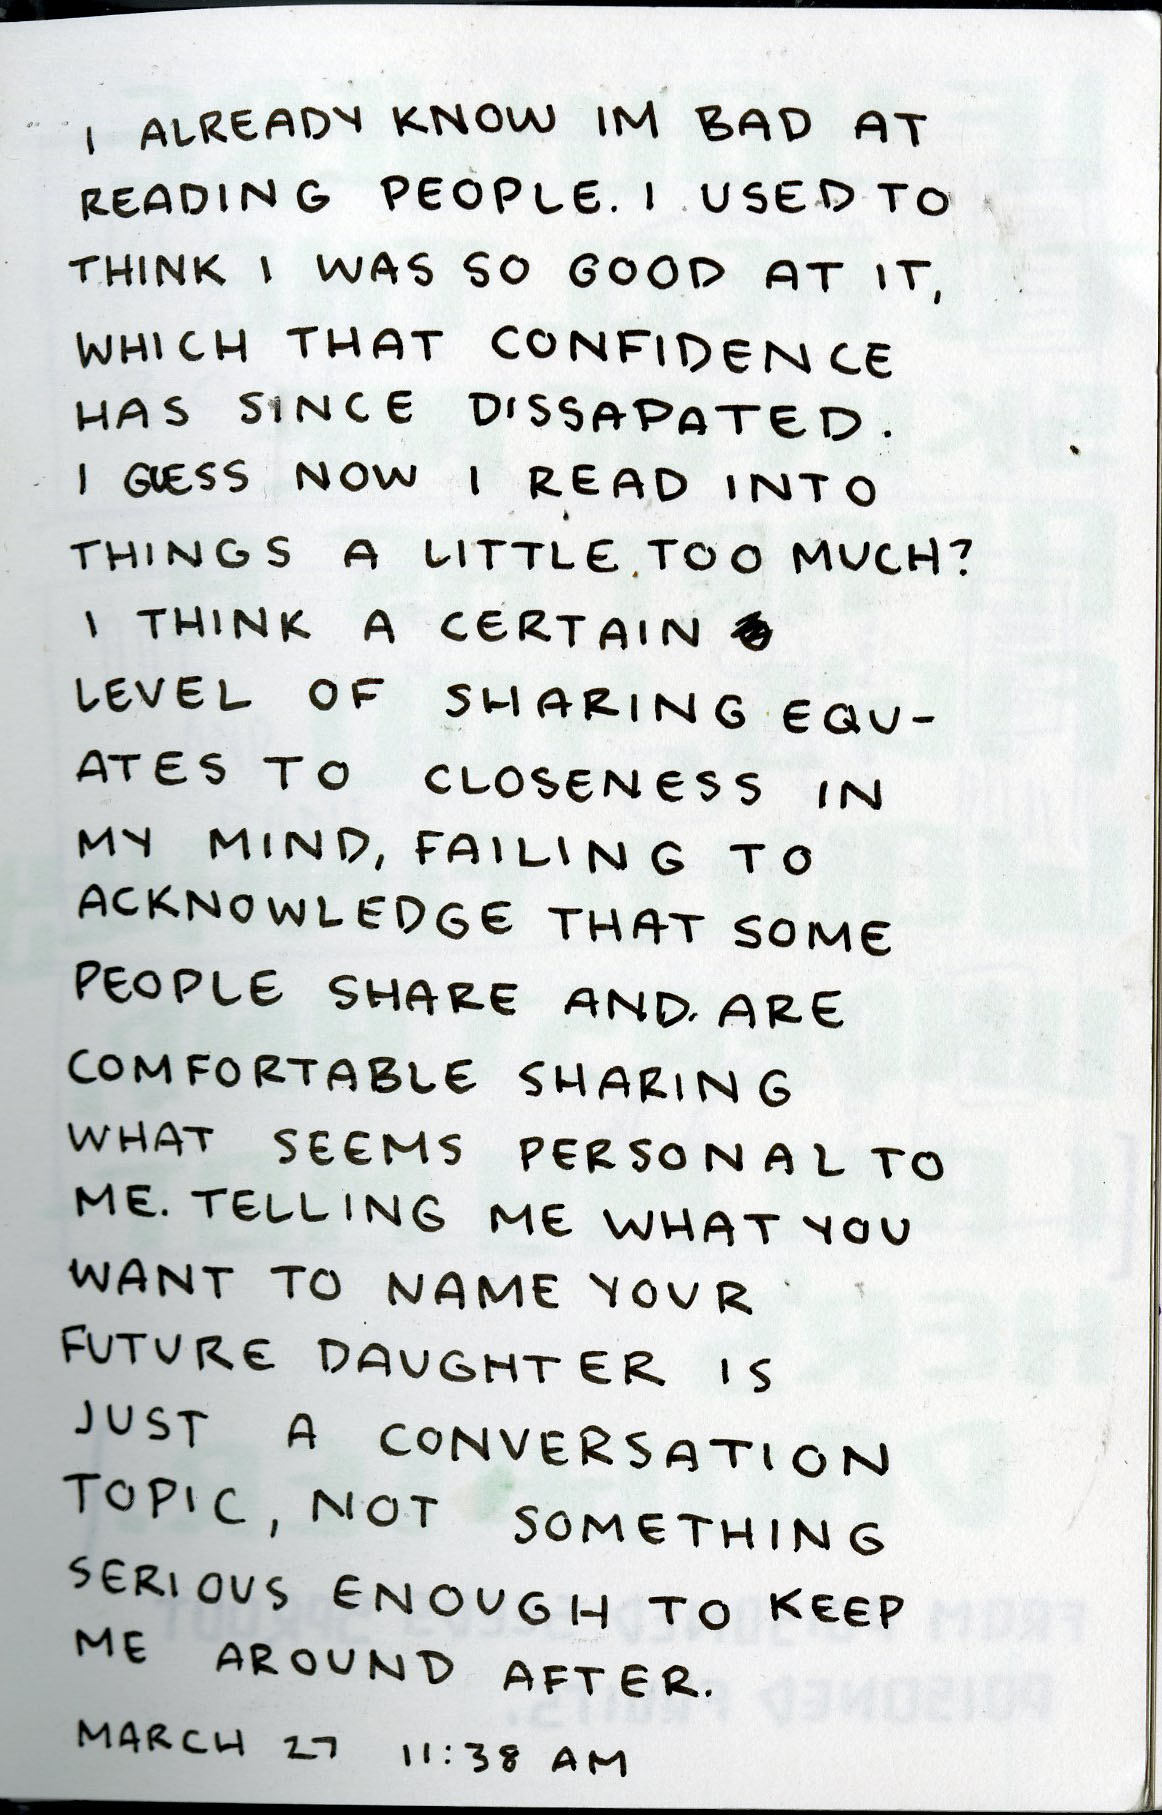 I ALREADY KNOW IM BAD AT
READING PEOPLE. I USED TO
THINK I WAS SO GOOD AT IT,
WHICH THAT CONFIDENCE
HAS SINCE DISSAPATED.
I GUESS NOW I READ INTO
THINGS A LITTLE TOO MUCH?
I THINK A CERTAIN
LEVEL OF SHARING EQU-
ATES TO CLOSENESS IN
MY MIND, FAILING TO
ACKNOWLEDGE THAT SOME
PEOPLE SHARE AND ARE
COMFORTABLE SHARING
WHAT SEEMS PERSONAL TO
ME. TELLING ME WHAT YOU
WANT TO NAME YOUR
FUTURE DAUGHTER IS
JUST A CONVERSATION
TOPIC, NOT SOMETHING
SERIOUS ENOUGH TO KEEP
ME AROUND AFTER.
MARCH 27 11:38 AM
FROM POISONED SEEDS SPROUT
POISONED FRUITS.